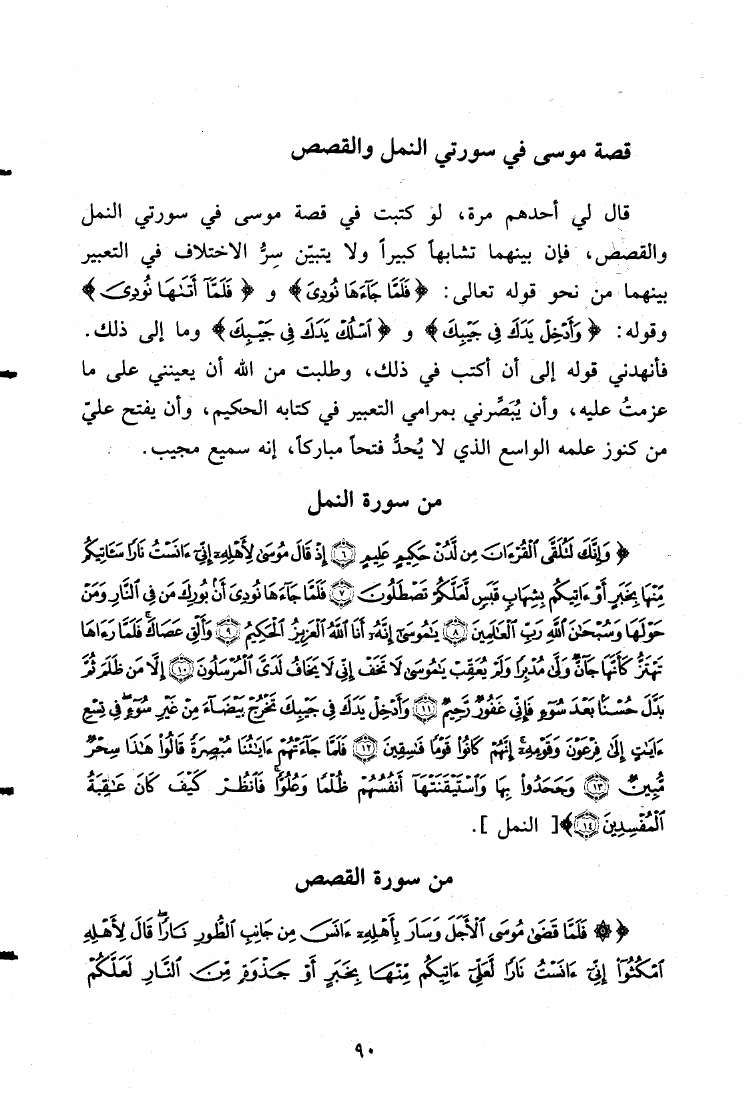 قصة موسى في سورتي النمل والقصص
قال لي أحدهم مرة، لو كتبت في قصة موسى في سورتي النمل
والقصص، فإن بينهما تشابهاً كبيراً ولا يتبيّن سِرُّ الاختلاف في التعبير
بينهما من نحو قوله تعالى: ﴿ فَلَمَّا جَآءَهَا نُودِىَ﴾ و ﴿ فَلَمَّآ أَتَىٰهَا نُودِىَ﴾
وقوله: ﴿ وَأَدْخِلْ يَدَكَ فِى جَيْبِكَ ﴾ و ﴿ ٱسْلُكْ يَدَكَ فِى جَيْبِكَ﴾ وما إلى ذلك.
فأنهدني قوله إلى أن أكتب في ذلك، وطلبت من الله أن يعينني على ما
عزمتُ عليه، وأن يُبَصِّرني بمرامي التعبير في كتابه الحكيم، وأن يفتح عليّ
من كنوز علمه الواسع الذي لا يُحدُّ فتحاً مباركاً، إنه سميع مجيب.
من سورة النمل
﴿ وَإِنَّكَ لَتُلَقَّى ٱلْقُرْءَانَ مِن لَّدُنْ حَكِيمٍ عَلِيمٍ ٦ إِذْ قَالَ مُوسَىٰ لِأَهْلِهِۦٓ إِنِّىٓ ءَانَسْتُ نَارًا سَـَٔاتِيكُم
مِّنْهَا بِخَبَرٍ أَوْ ءَاتِيكُم بِشِهَابٍ قَبَسٍ لَّعَلَّكُمْ تَصْطَلُونَ ٧ فَلَمَّا جَآءَهَا نُودِىَ أَنۢ بُورِكَ مَن فِى ٱلنَّارِ وَمَنْ
حَوْلَهَا وَسُبْحَٰنَ ٱللَّهِ رَبِّ ٱلْعَٰلَمِينَ ٨ يَٰمُوسَىٰٓ إِنَّهُۥٓ أَنَا ٱللَّهُ ٱلْعَزِيزُ ٱلْحَكِيمُ ٩ وَأَلْقِ عَصَاكَ ۚ فَلَمَّا رَءَاهَا
تَهْتَزُّ كَأَنَّهَا جَآنٌّ وَلَّىٰ مُدْبِرًا وَلَمْ يُعَقِّبْ ۚ يَٰمُوسَىٰ لَا تَخَفْ إِنِّى لَا يَخَافُ لَدَىَّ ٱلْمُرْسَلُونَ ١٠ إِلَّا مَن ظَلَمَ ثُمَّ
بَدَّلَ حُسْنًۢا بَعْدَ سُوٓءٍ فَإِنِّى غَفُورٌ رَّحِيمٌ ١١ وَأَدْخِلْ يَدَكَ فِى جَيْبِكَ تَخْرُجْ بَيْضَآءَ مِنْ غَيْرِ سُوٓءٍ ۖ فِى تِسْعِ
ءَايَٰتٍ إِلَىٰ فِرْعَوْنَ وَقَوْمِهِۦٓ ۚ إِنَّهُمْ كَانُوا۟ قَوْمًا فَٰسِقِينَ ١٢ فَلَمَّا جَآءَتْهُمْ ءَايَٰتُنَا مُبْصِرَةً قَالُوا۟ هَٰذَا سِحْرٌ
مُّبِينٌ ١٣ وَجَحَدُوا۟ بِهَا وَٱسْتَيْقَنَتْهَآ أَنفُسُهُمْ ظُلْمًا وَعُلُوًّا ۚ فَٱنظُرْ كَيْفَ كَانَ عَٰقِبَةُ
ٱلْمُفْسِدِينَ ١٤﴾ [ النمل ].
من سورة القصص
﴿ ۞ فَلَمَّا قَضَىٰ مُوسَى ٱلْأَجَلَ وَسَارَ بِأَهْلِهِۦٓ ءَانَسَ مِن جَانِبِ ٱلطُّورِ نَارًا ۖ قَالَ لِأَهْلِهِ
ٱمْكُثُوٓا۟ إِنِّىٓ ءَانَسْتُ نَارًا لَّعَلِّىٓ ءَاتِيكُم مِّنْهَا بِخَبَرٍ أَوْ جَذْوَةٍ مِّنَ ٱلنَّارِ لَعَلَّكُمْ
٩٠